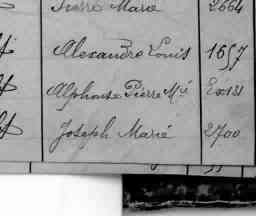 Pierre Marie 2664
Alexandre Louis 1657
Alphonse Pierre Mie
Joseph Marie 2700